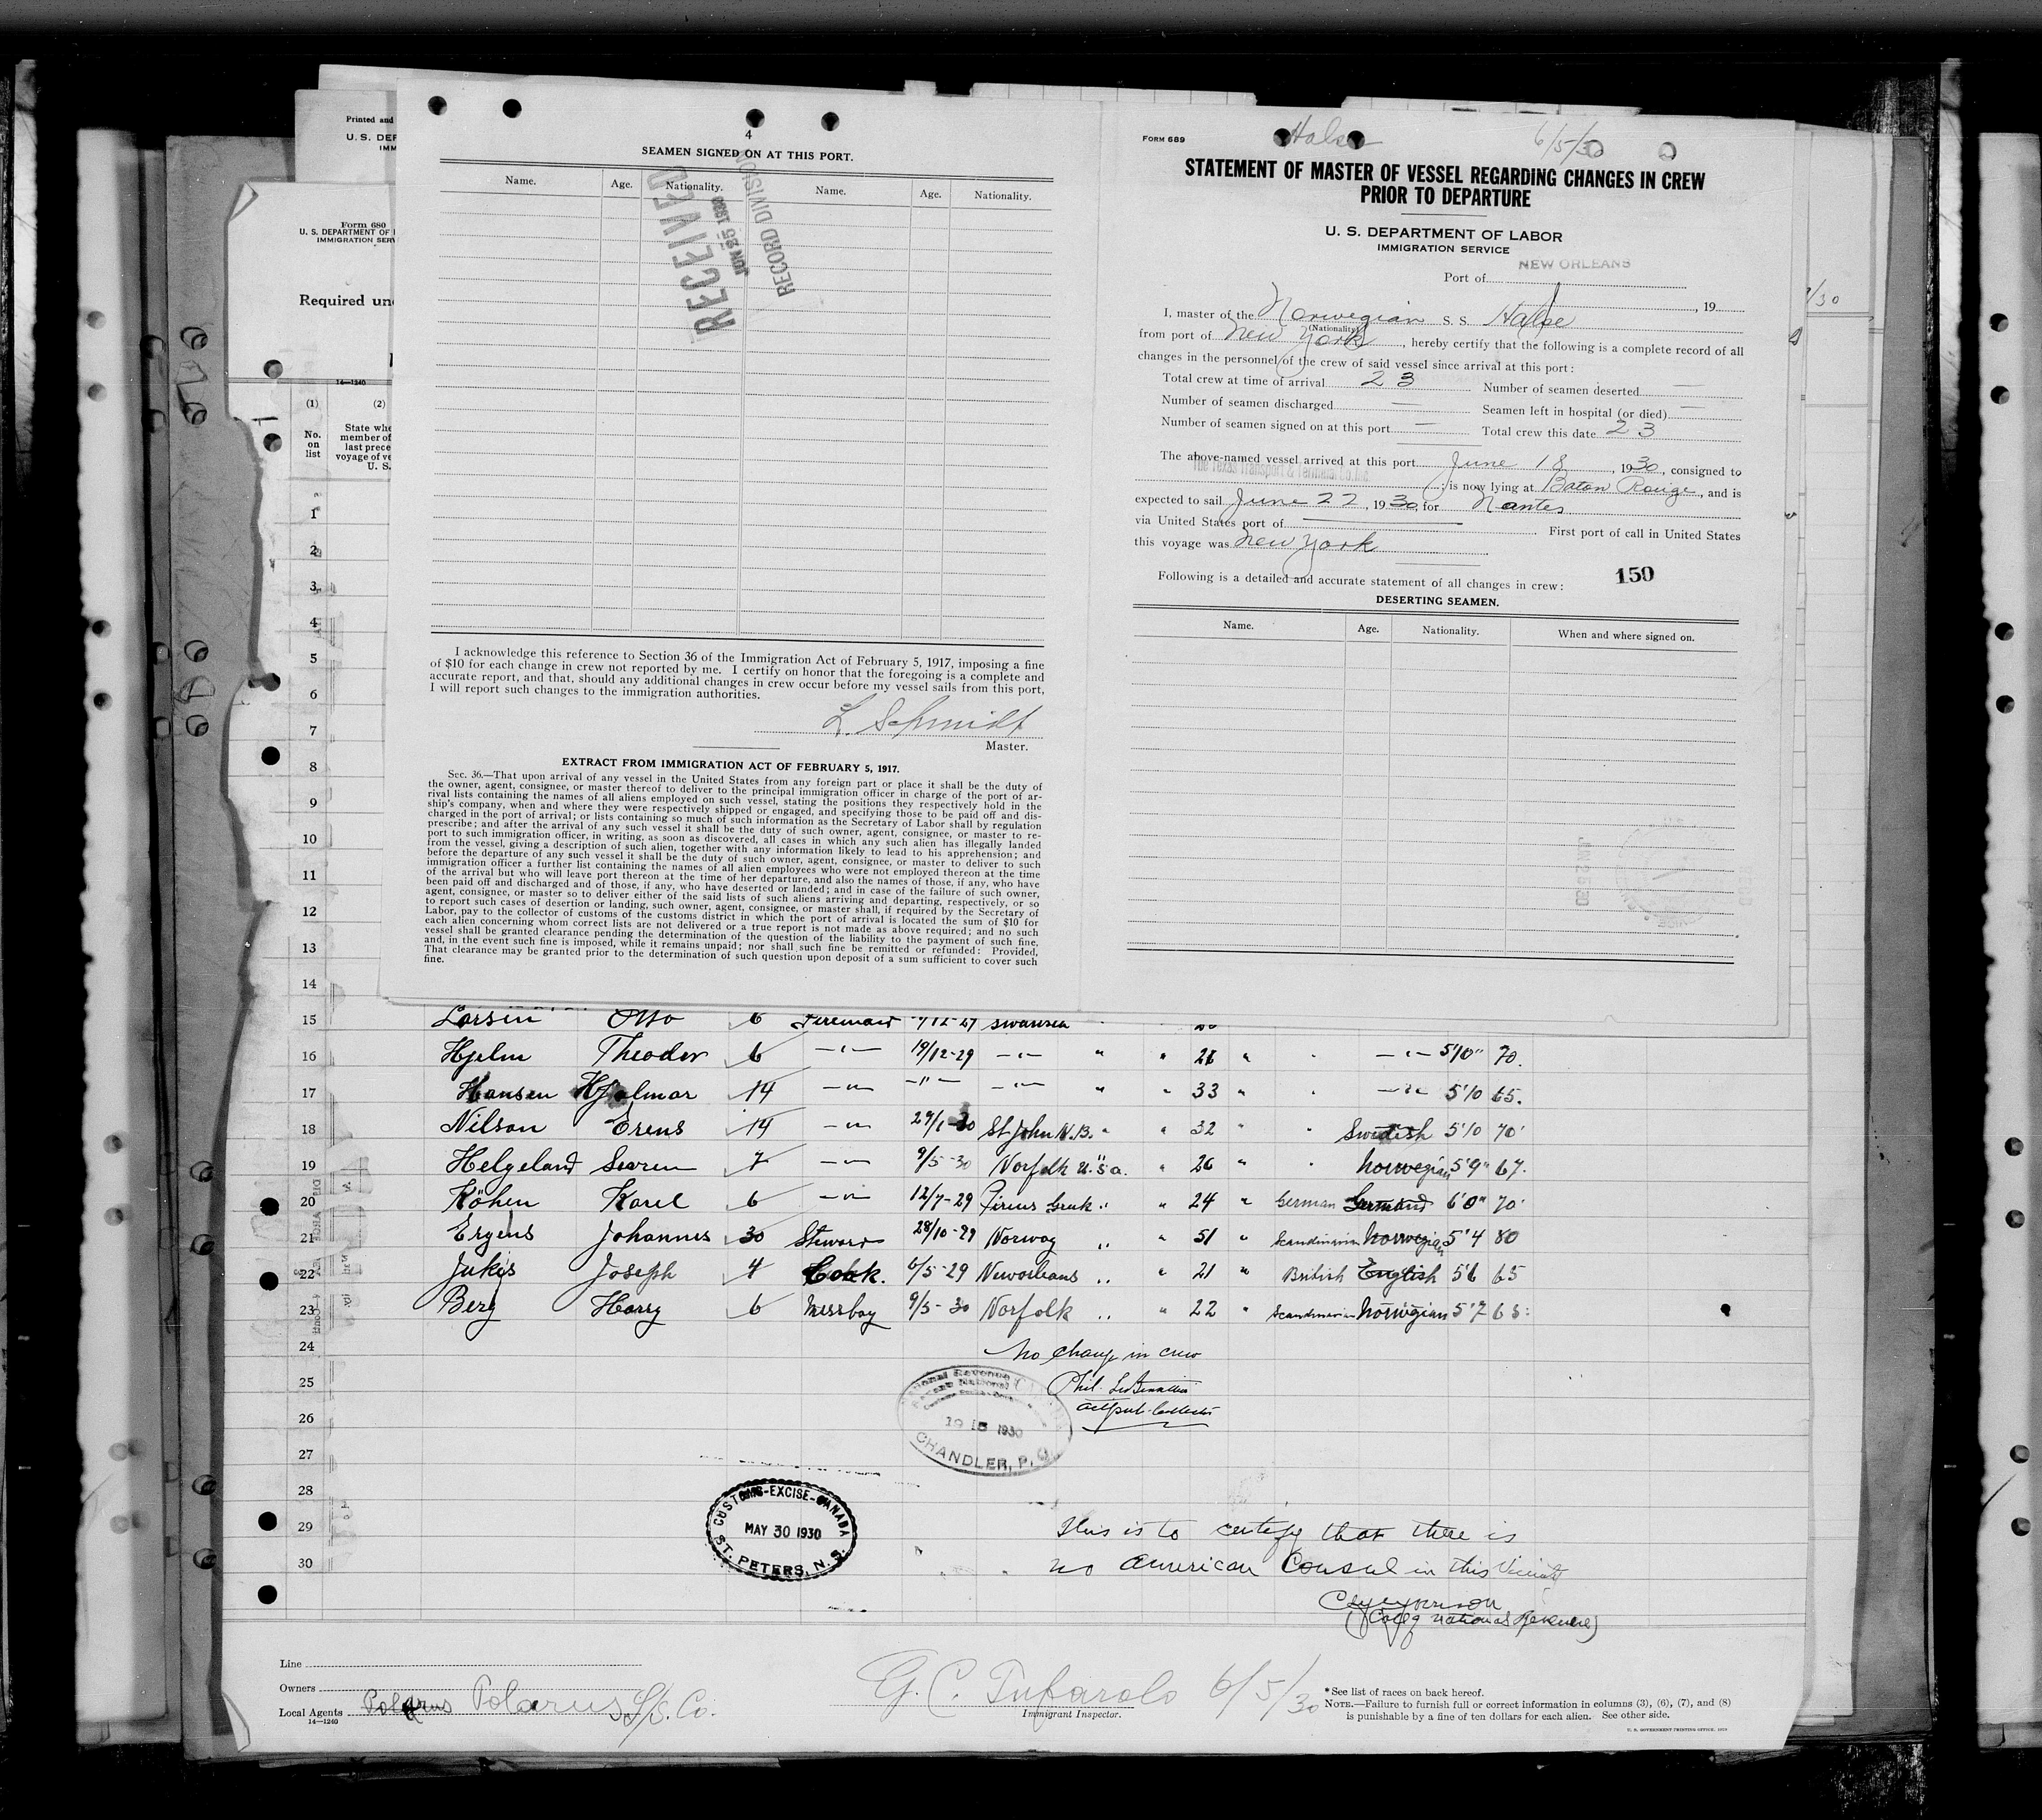 Printed and
U. S. DEP
IMM
Form 680
U. S. DEPARTMENT OF
IMMIGRATION SERV
Required un
14—1240
(1)
(2)
No.
on
list
State whe
member of
last prece
voyage of ve
U. S.
1
2
3
4
5
6
7
8
9
10
11
12
13
14
4
SEAMEN SIGNED ON AT THIS PORT.
Name. Age. Nationality. Name. Age. Nationality.
RECEIVED
JUN 25 1930
RECORD DIVISION
I acknowledge this reference to Section 36 of the Immigration Act of February 5, 1917, imposing a fine
of $10 for each change in crew not reported by me. I certify on honor that the foregoing is a complete and
accurate report, and that, should any additional changes in crew occur before my vessel sails from this port,
I will report such changes to the immigration authorities.
L. Schmidt
Master.
EXTRACT FROM IMMIGRATION ACT OF FEBRUARY 5, 1917.
Sec. 36.—That upon arrival of any vessel in the United States from any foreign part or place it shall be the duty of
the owner, agent, consignee, or master thereof to deliver to the principal immigration officer in charge of the port of ar-
rival lists containing the names of all aliens employed on such vessel, stating the positions they respectively hold in the
ship's company, when and where they were respectively shipped or engaged, and specifying those to be paid off and dis-
charged in the port of arrival; or lists containing so much of such information as the Secretary of Labor shall by regulation
prescribe; and after the arrival of any such vessel it shall be the duty of such owner, agent, consignee, or master to re-
port to such immigration officer, in writing, as soon as discovered, all cases in which any such alien has illegally landed
from the vessel, giving a description of such alien, together with any information likely to lead to his apprehension; and
before the departure of any such vessel it shall be the duty of such owner, agent, consignee, or master to deliver to such
immigration officer a further list containing the names of all alien employees who were not employed thereon at the time
of the arrival but who will leave port thereon at the time of her departure, and also the names of those, if any, who have
been paid off and discharged and of those, if any, who have deserted or landed; and in case of the failure of such owner,
agent, consignee, or master so to deliver either of the said lists of such aliens arriving and departing, respectively, or so
to report such cases of desertion or landing, such owner, agent, consignee, or master shall, if required by the Secretary of
Labor, pay to the collector of customs of the customs district in which the port of arrival is located the sum of $10 for
each alien concerning whom correct lists are not delivered or a true report is not made as above required; and no such
vessel shall be granted clearance pending the determination of the question of the liability to the payment of such fine,
and, in the event such fine is imposed, while it remains unpaid; nor shall such fine be remitted or refunded: Provided,
That clearance may be granted prior to the determination of such question upon deposit of a sum sufficient to cover such
fine.
FORM 689
Halse 6/5/30
STATEMENT OF MASTER OF VESSEL REGARDING CHANGES IN CREW
PRIOR TO DEPARTURE
U. S. DEPARTMENT OF LABOR
IMMIGRATION SERVICE
Port of NEW ORLEANS
, 19
I, master of the Norwegian S. S. Halse
(Nationality)
from port of New York, hereby certify that the following is a complete record of all
changes in the personnel of the crew of said vessel since arrival at this port:
Total crew at time of arrival 23 Number of seamen deserted —
Number of seamen discharged — Seamen left in hospital (or died) —
Number of seamen signed on at this port — Total crew this date 23
The above-named vessel arrived at this port June 18, 1930, consigned to
The Texas Transport & Terminal Co. Inc.; is now lying at Baton Rouge, and is
expected to sail June 22, 1930, for Nantes
via United States port of —. First port of call in United States
this voyage was New York
Following is a detailed and accurate statement of all changes in crew: 150
DESERTING SEAMEN.
Name. Age. Nationality. When and where signed on.
15 Larsen Otto 6 Fireman Swansea
16 Hjelm Theodor 6 —"— 19/12-29 —"— " " 28 " " —"— 5'10" 70.
17 Hansen Hjalmar 14 —"— —"— —"— " " 33 " " —"— 5'10 65.
18 Nilson Erens 14 —"— 29/1-30 St John N.B. " " 32 " " Swedish 5'10 70
19 Helgeland Sevren 7 —"— 9/5-30 Norfolk U.S.a. " 26 " " Norwegian 5'9" 67.
20 Köhen Karel 6 —"— 12/7-29 Pireus Greek " " 24 " German 6'0" 70
21 Ergens Johannes 30 Steward 28/10-29 Norway " " 51 " Scandinavian Norwegian 5'4 80
22 Jukes Joseph 4 Cook. 6/5-29 Neworleans " " 21 " British English 5'6 65
23 Berg Harry 6 Messboy 9/5-30 Norfolk " " 22 " Scandinavian Norwegian 5'7 65
24
No change in crew
25
Phil.
26
27
CHANDLER, P. Q.
1930
28
CUSTOMS-EXCISE-CANADA
MAY 30 1930
ST. PETERS, N. S.
29 This is to certify that there is
30 no American Consul in this
National Revenue)
Line
Owners
Local Agents Polarus Polarus S/S. Co.
14—1240
G. C. Tufarolo 6/5/30
Immigrant Inspector.
*See list of races on back hereof.
NOTE.—Failure to furnish full or correct information in columns (3), (6), (7), and (8)
is punishable by a fine of ten dollars for each alien. See other side.
U. S. GOVERNMENT PRINTING OFFICE, 1929